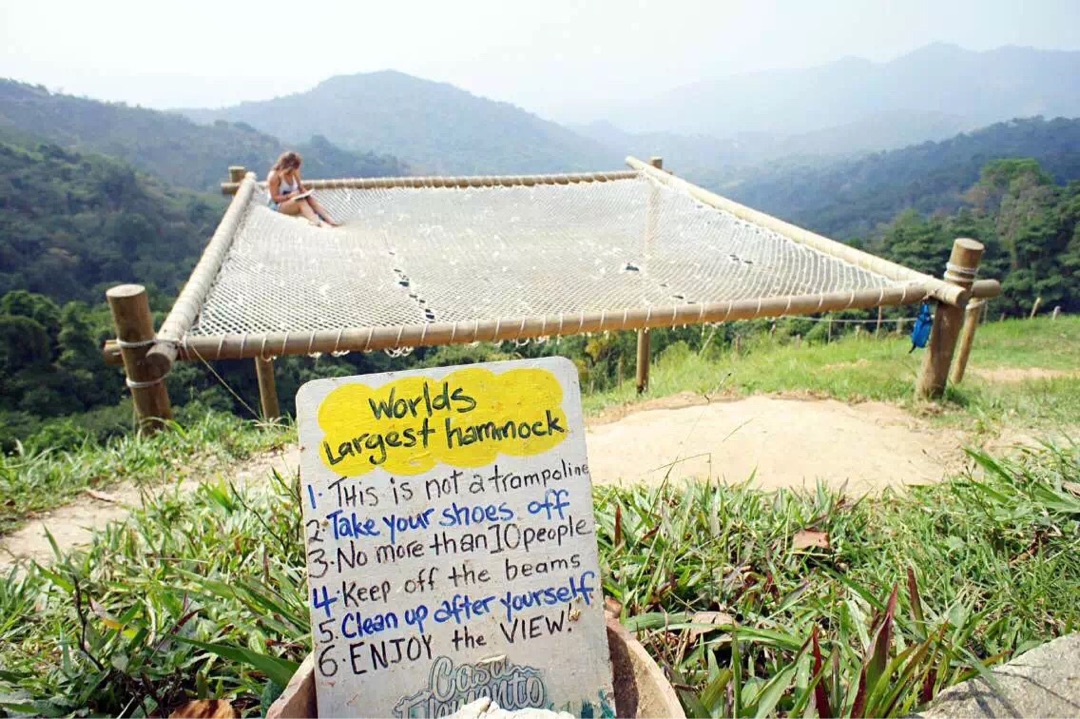 Worlds
Largest hammock
1. THis is not a trampoline
2. Take your shoes off
3. No more than 10 people
4. Keep off the beams
5. Clean up after yourself
6. ENJOY the VIEW!
Casa